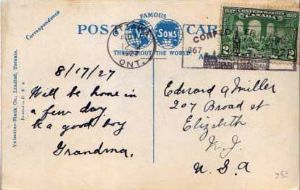 FAMOUS
POST CARD
THROUGHOUT THE WORLD
SONS
Correspondence
Valentine-Black Co., Limited, Toronto.
ONT.
CONFED
867
CANADA
2 2
8/17/27
Will be home in
a few day
be a good boy
Grandma.
Edward G Miller
207 Broad st
Elizabeth
N.J.
U.S.A